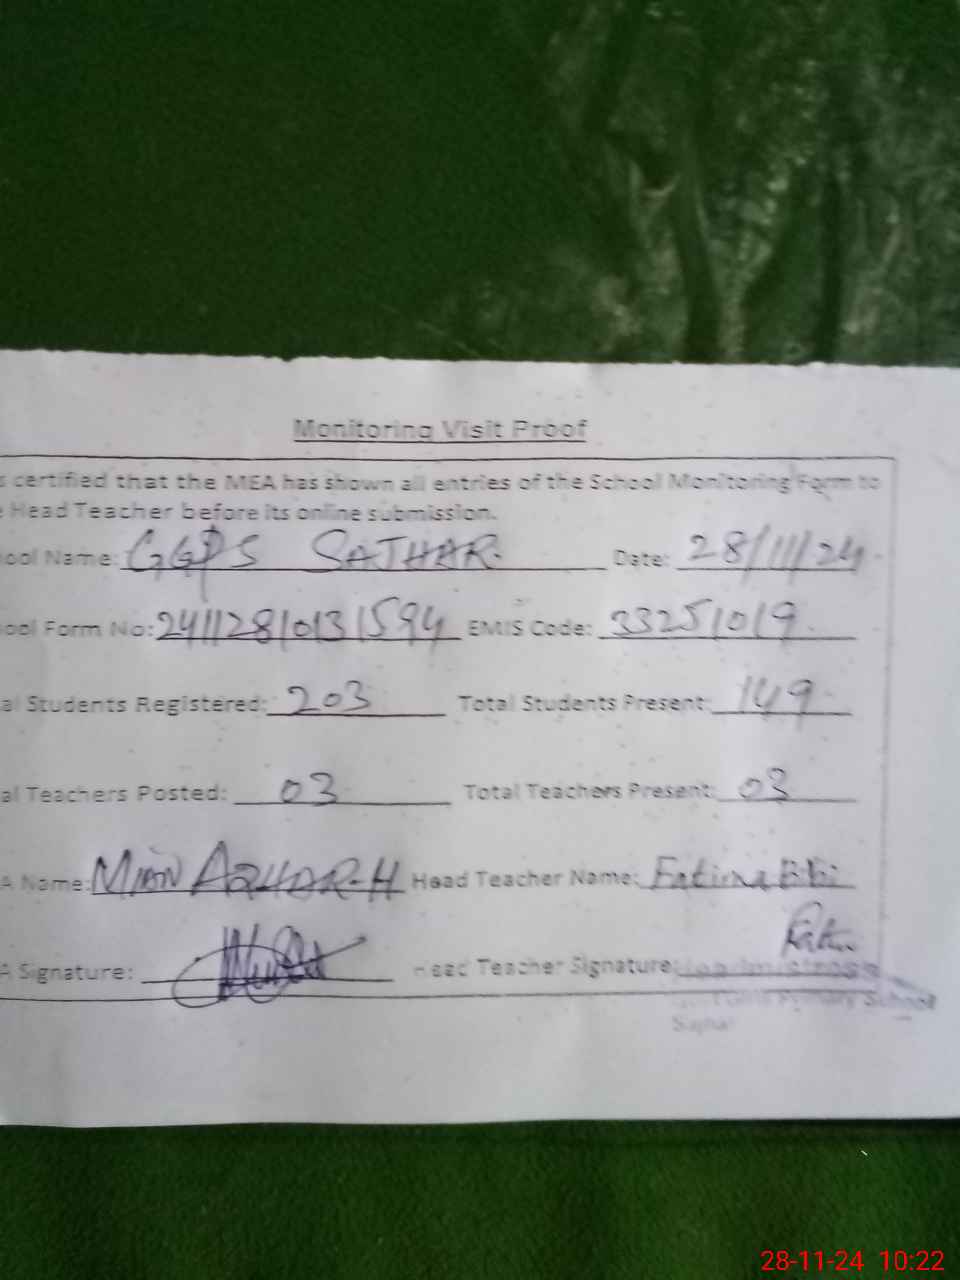 Monitoring Visit Proof
s certified that the MEA has shown all entries of the School Monitoring Form to
e Head Teacher before its online submission.
ool Name: GGPS SAJHAR Date: 28/11/24
ool Form No: 24112810131594 EMIS Code: 33251019
al Students Registered: 203 Total Students Present: 149
al Teachers Posted: 03 Total Teachers Present: 03
A Name: MIAN AZHAR-H Head Teacher Name: Fatima Bibi
A Signature: Head Teacher Signature:
Girls Primary School
28-11-24 10:22